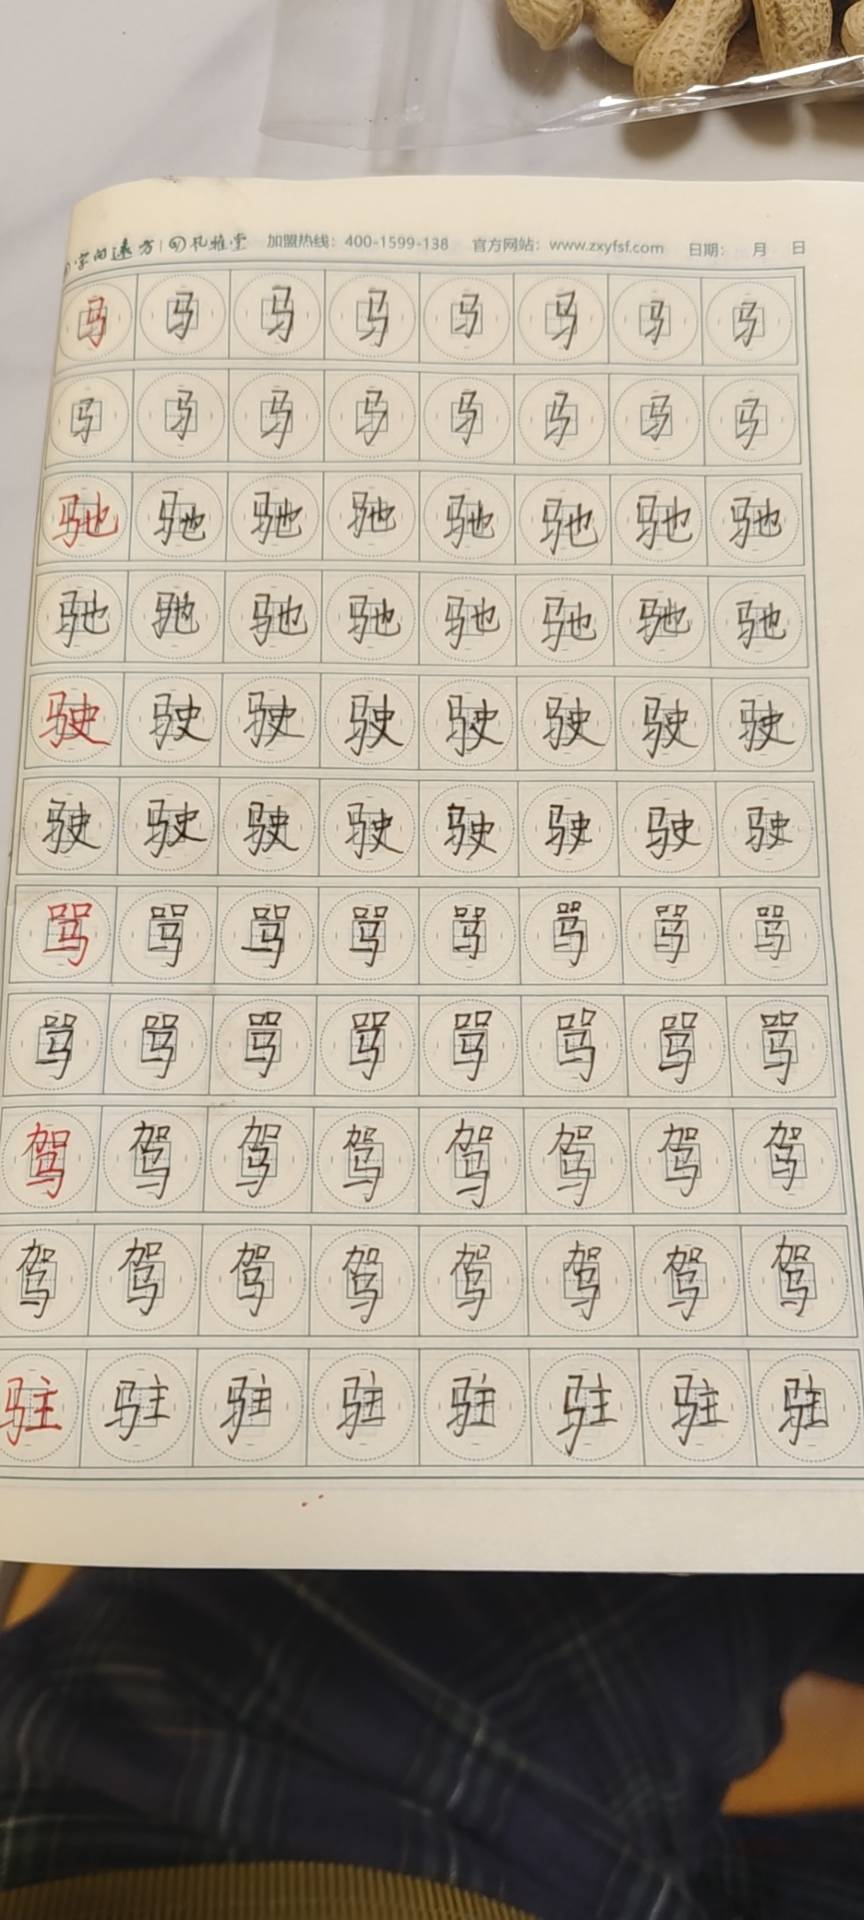 字的远方 习礼雅堂 加盟热线：400-1599-138 官方网站：www.zxyfsf.com 日期： 月 日
马 马 马 马 马 马 马 马
马 马 马 马 马 马 马 马
驰 驰 驰 驰 驰 驰 驰 驰
驰 驰 驰 驰 驰 驰 驰 驰
驶 驶 驶 驶 驶 驶 驶 驶
驶 驶 驶 驶 驶 驶 驶 驶
骂 骂 骂 骂 骂 骂 骂 骂
骂 骂 骂 骂 骂 骂 骂 骂
驾 驾 驾 驾 驾 驾 驾 驾
驾 驾 驾 驾 驾 驾 驾 驾
驻 驻 驻 驻 驻 驻 驻 驻